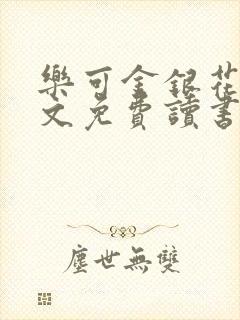 樂可金銀花
文免費讀書
塵世無雙